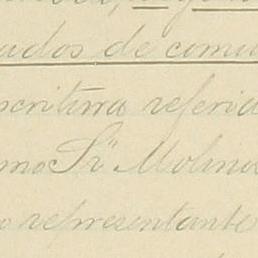 ados de comu
scritura referid
mo Sr Molino
representante